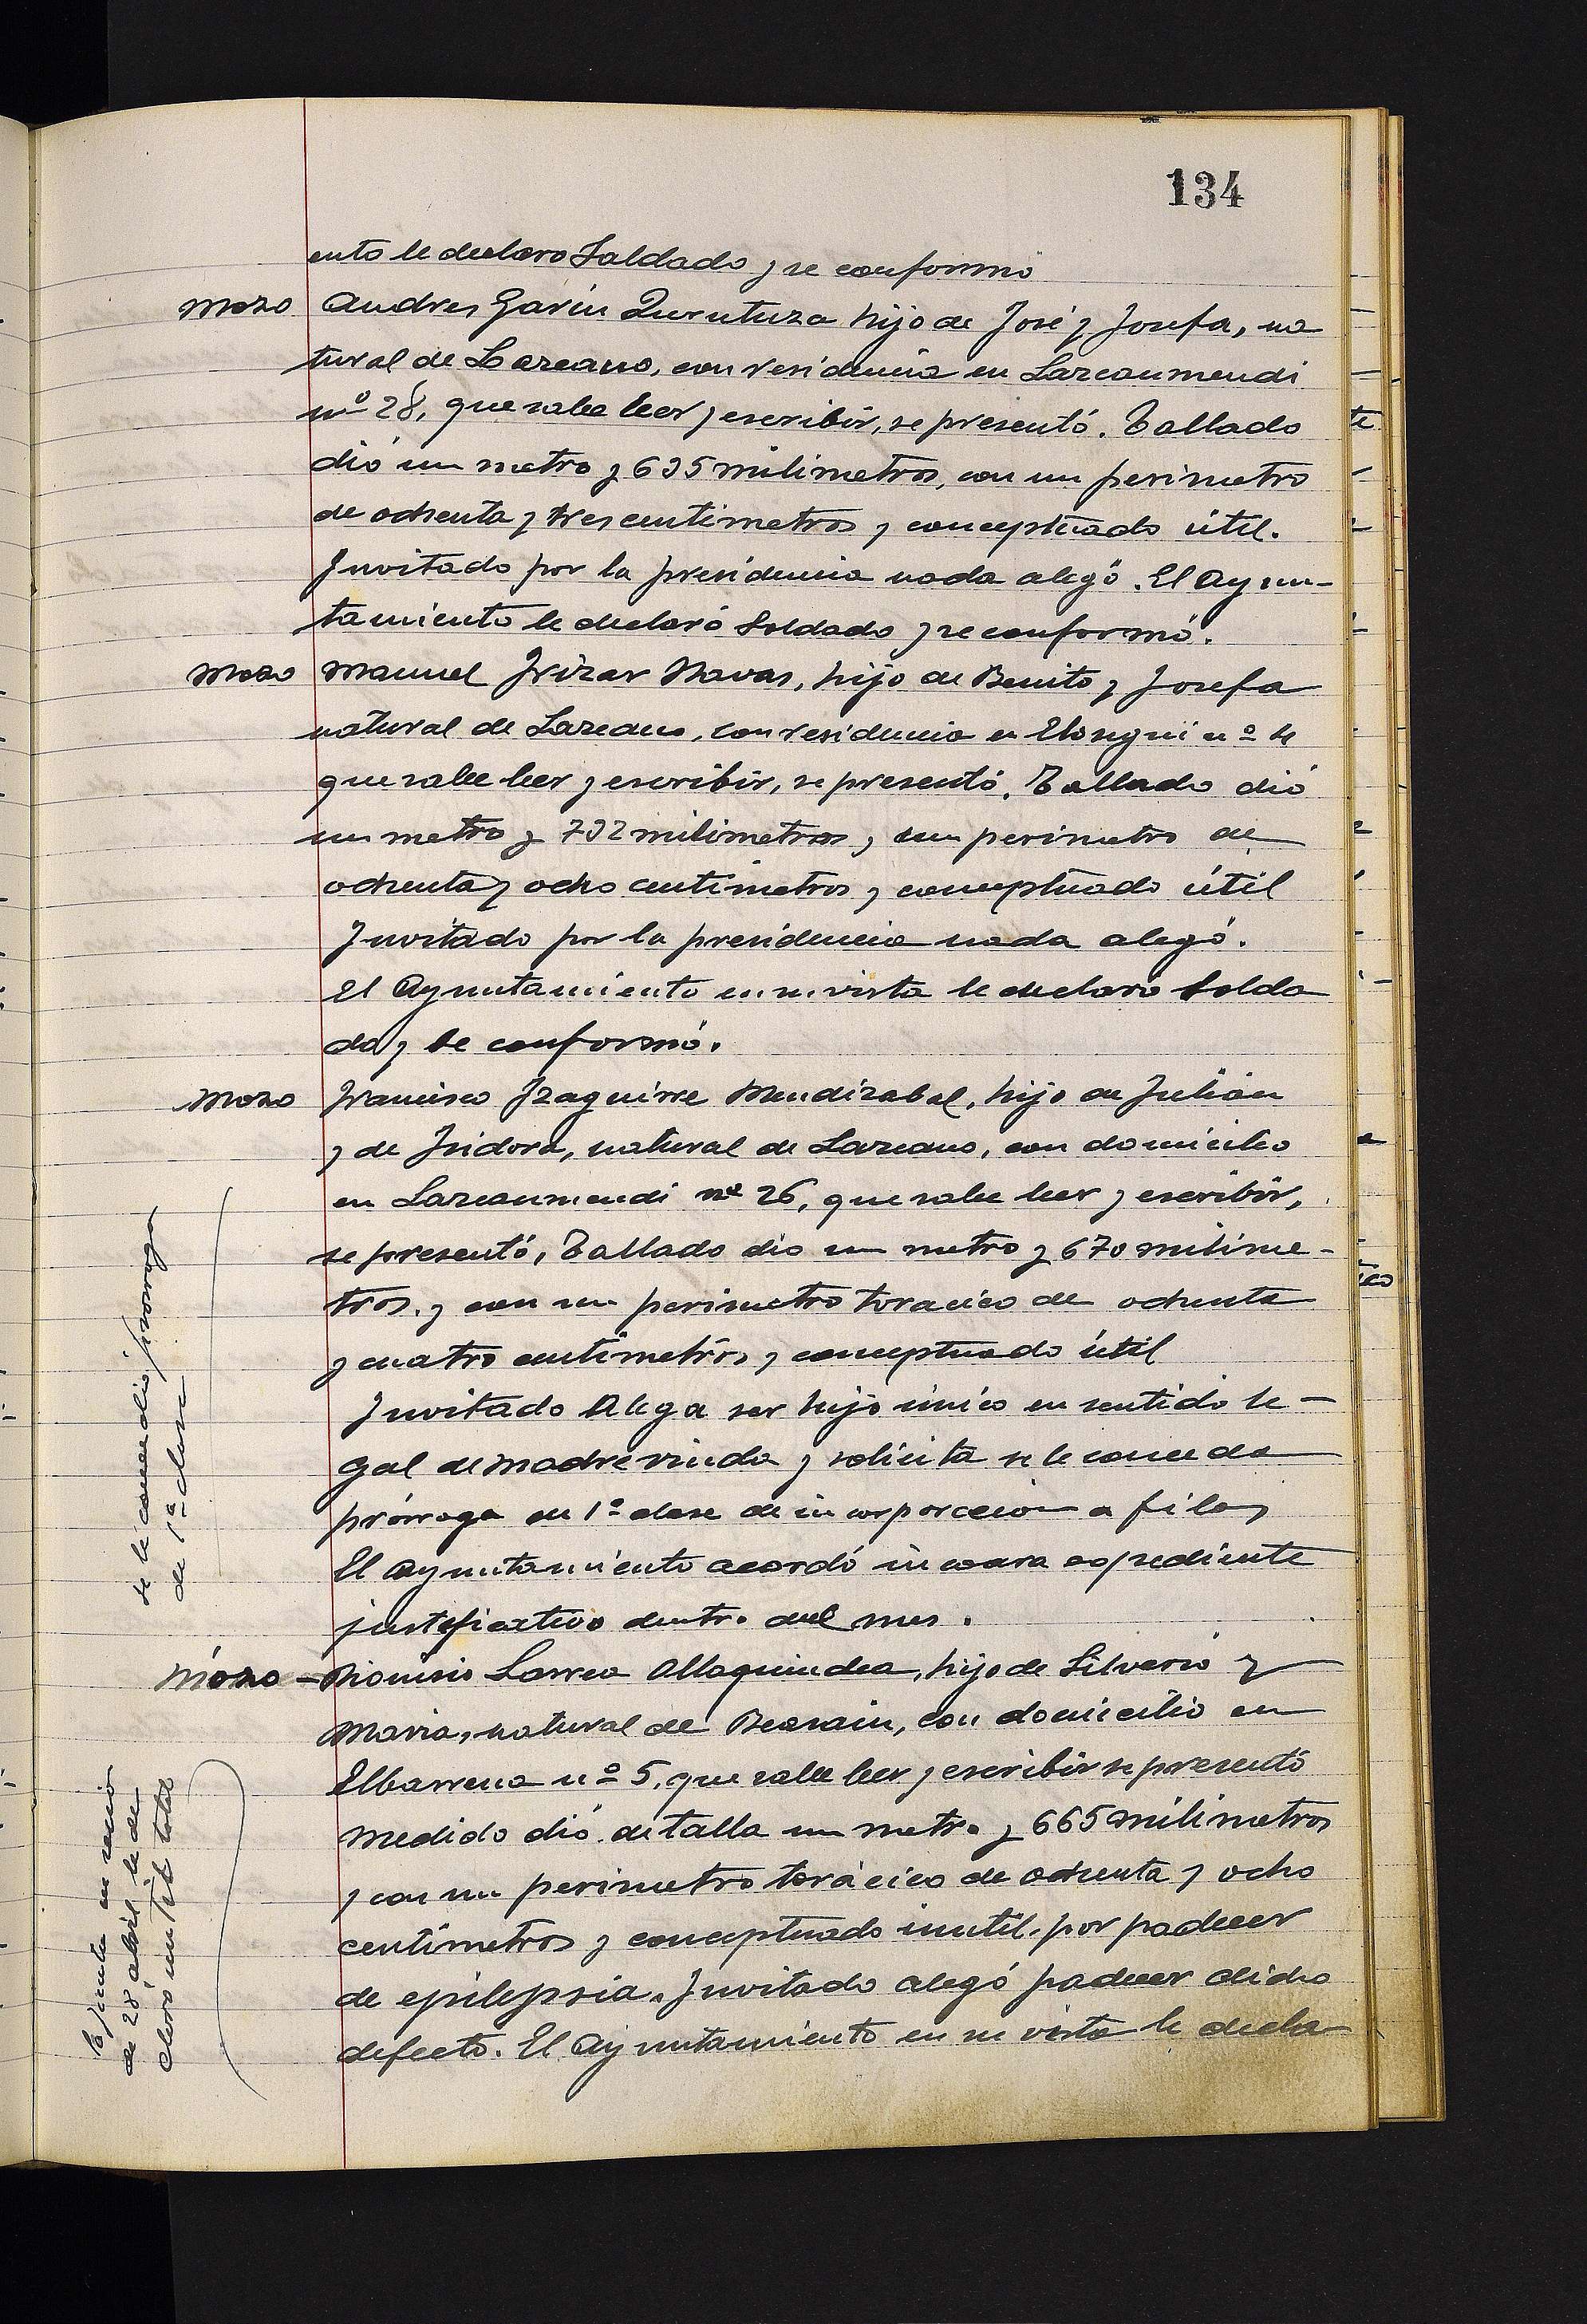 134
ento le declaro Soldado y se conformó
Mozo Andres Garin Zurutuza hijo de José y Josefa, na
tural de Lazcano, con residencia en Lazcaumendi
nº 28, que sabe leer y escribir, se presentó. Tallado
dió un metro y 635 milimetros, con un perimetro
de ochenta y tres centimetros y conceptuado útil.
Invitado por la presidencia nada alegó. El Ayun-
tamiento le declaró Soldado y se conformó.
Mozo Manuel Irizar Navas, hijo de Benito y Josefa
natural de Lazcano, con residencia en Elosegui nº 4
que sabe leer y escribir, se presentó. Tallado dió
un metro y 732 milimetros, un perimetro de
ochenta y ocho centimetros y conceptuado útil
Invitado por la presidencia nada alegó.
El Ayuntamiento en su vista le declaró Solda
do y se conformó.
Mozo Francisco Izaguirre Mendizabal, hijo de Julián
y de Isidora, natural de Lazcano, con domicilio
en Lazcaumendi nº 26, que sabe leer y escribir,
se presentó, Tallado dio un metro y 670 milime-
tros, y con un perimetro toracico de ochenta
y cuatro centimetros, y conceptuado útil
Invitado Alega ser hijo único en sentido le-
gal de madre viuda y solicita se le conceda
prórroga de 1ª clase de incorporacion a filas
El Ayuntamiento acordó incoara expediente
justificativo dentro del mes.
se le concedio prorroga
de 1ª clase
Mozo - Dionisio Larrea Allaquindea, hijo de Silverio y
Maria, natural de Beasain, con domicilio en
Elbarrena nº 5, que sabe leer y escribir se presentó
Medido dió de talla un metro y 665 milimetros
y con un perimetro torácico de ochenta y ocho
centimetros y conceptuado inutil, por padecer
de epilepsia. Invitado alegó padecer dicho
defecto. El Ayuntamiento en su vista le decla
la junta en sesion
de 28 abril le de
claró inutil total